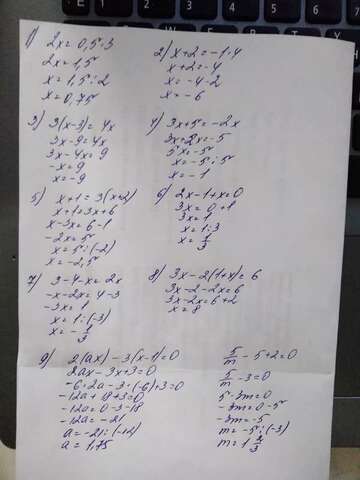 1) 2x = 0,5·3
2x = 1,5
x = 1,5:2
x = 0,75
2) x+2 = -1·4
x+2 = -4
x = -4-2
x = -6
3) 3(x-3) = 4x
3x-9 = 4x
3x-4x = 9
-x = 9
x = -9
4) 3x+5 = -2x
3x+2x = -5
5x = -5
x = -5:5
x = -1
5) x+1 = 3(x+2)
x+1 = 3x+6
x-3x = 6-1
-2x = 5
x = 5:(-2)
x = -2,5
6) 2x-1+x = 0
3x = 0+1
3x = 1
x = 1:3
x = 1/3
7) 3-4-x = 2x
-x-2x = 4-3
-3x = 1
x = 1:(-3)
x = -1/3
8) 3x-2(1+x) = 6
3x-2-2x = 6
3x-2x = 6+2
x = 8
9) 2(ax)-3(x-1) = 0
2ax-3x+3 = 0
-6·2a-3·(-6)+3 = 0
-12a+18+3 = 0
-12a = 0-3-18
-12a = -21
a = -21:(-12)
a = 1,75
5/m -5+2 = 0
5/m -3 = 0
5-3m = 0
-3m = 0-5
-3m = -5
m = -5:(-3)
m = 1 2/3